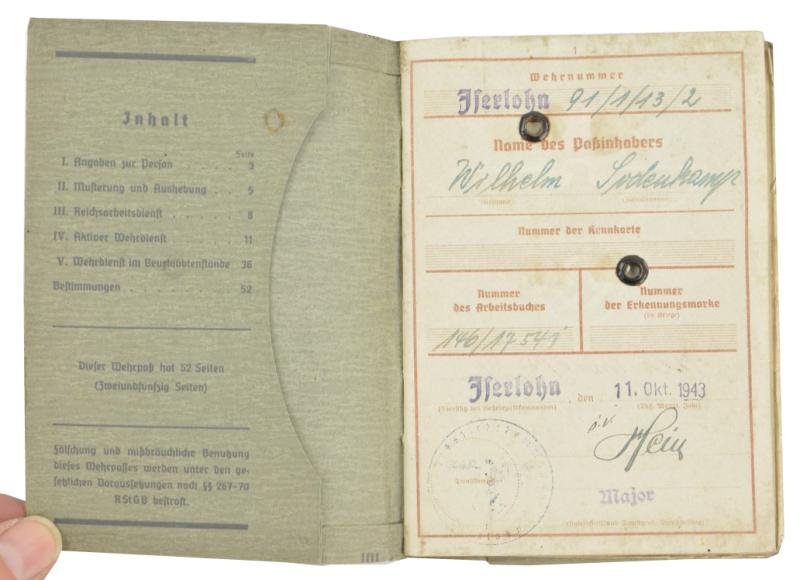 Inhalt
Seite
I. Angaben zur Person . . . . . . 3
II. Musterung und Aushebung . . . . 5
III. Reichsarbeitsdienst . . . . . . . 8
IV. Aktiver Wehrdienst . . . . . . 11
V. Wehrdienst im Beurlaubtenstande 36
Bestimmungen . . . . . . . . . 52
Dieser Wehrpaß hat 52 Seiten
(Zweiundfünfzig Seiten)
Fälschung und mißbräuchliche Benutzung
dieses Wehrpasses werden unter den ge-
setzlichen Voraussetzungen nach §§ 267-70
RStGB bestraft.
1
Wehrnummer
Iserlohn 91/1/13/2
Name des Paßinhabers
Wilhelm Sodenkamp
Nummer der Kennkarte
Nummer
des Arbeitsbuches
146/17541
Nummer
der Erkennungsmarke
(im Kriege)
Iserlohn, den 11. Okt. 1943
i.V.
Major